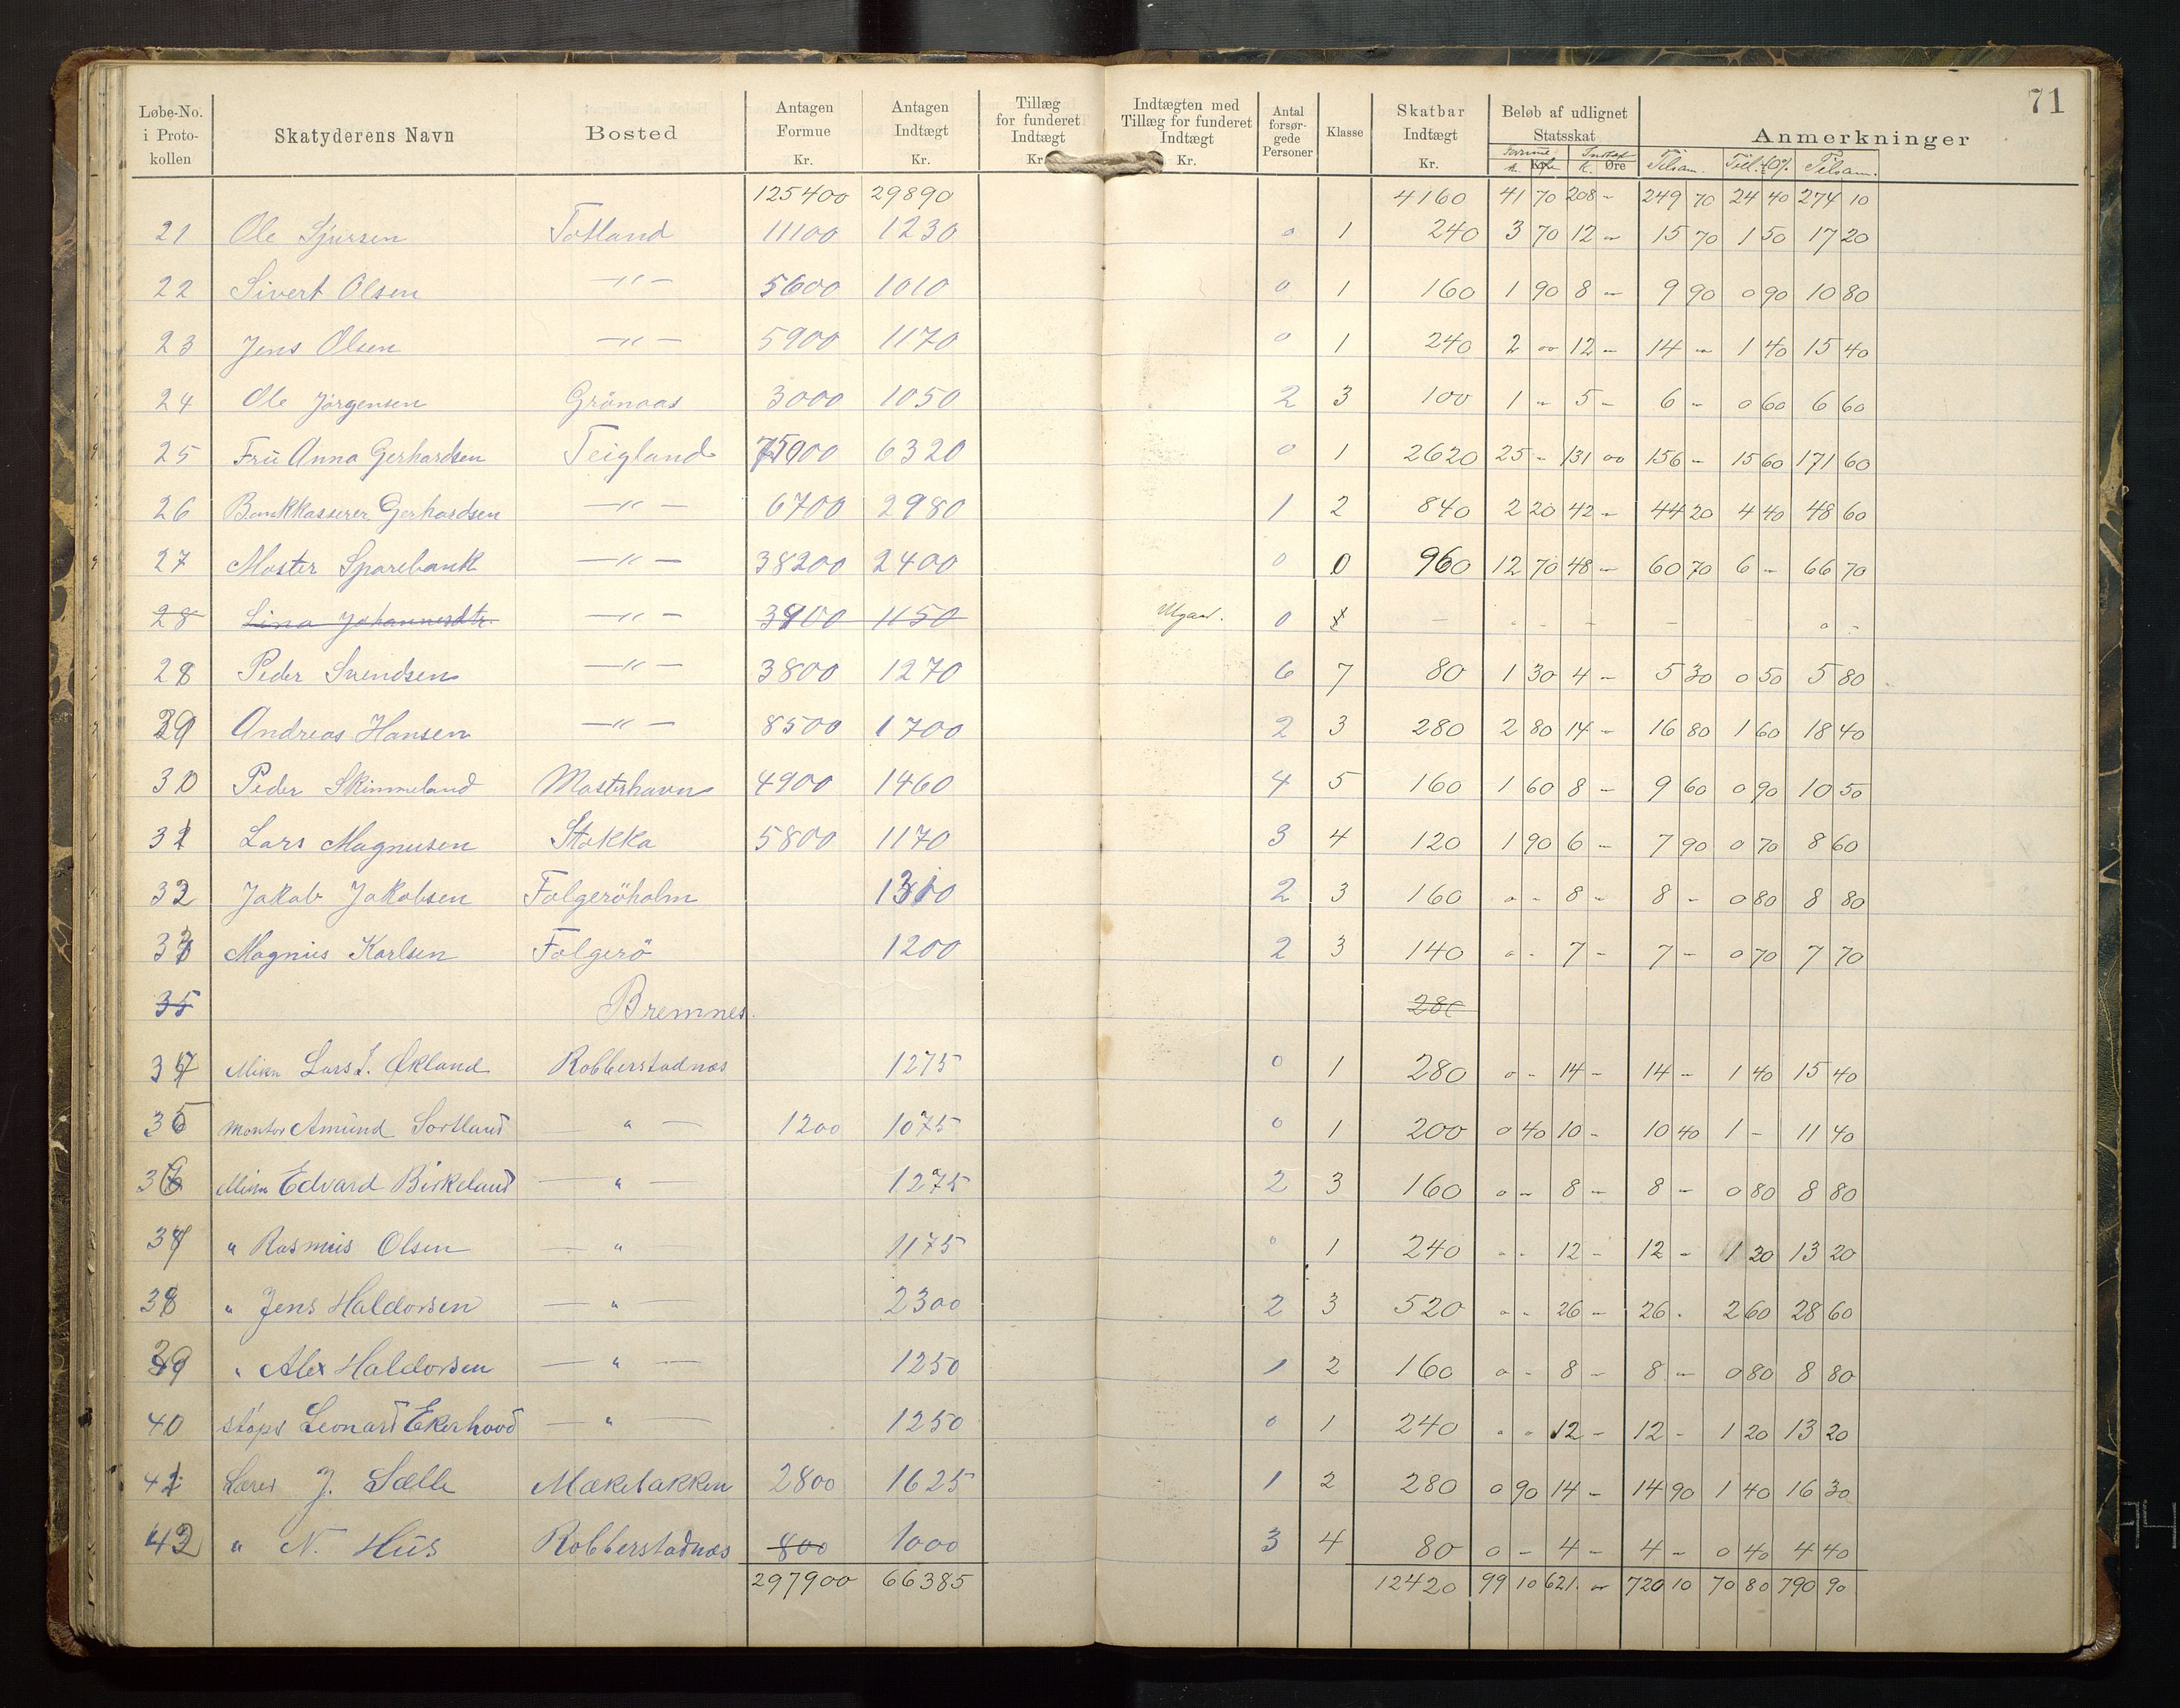 71
Løbe-No. i Proto-kollen | Skatyderens Navn | Bosted | Antagen Formue Kr. | Antagen Indtægt Kr. | Tillæg for funderet Indtægt Kr. | Indtægten med Tillæg for funderet Indtægt Kr. | Antal forsør-gede Personer | Klasse | Skatbar Indtægt Kr. | Beløb af udlignet Statsskat | Anmerkninger
Formue K. Øre | Indtægt K. Øre | Tilsam. | Till. 10% | Tilsam.
125400 29890 4160 41 70 208 - 249 70 24 40 274 10
21 Ole Sjursen Totland 11100 1230 0 1 240 3 70 12 - 15 70 1 50 17 20
22 Sivert Olsen -"- 5600 1010 0 1 160 1 90 8 - 9 90 0 90 10 80
23 Jens Olsen -"- 5900 1170 0 1 240 2 - 12 - 14 - 1 40 15 40
24 Ole Jørgensen Grönaas 3000 1050 2 3 100 1 - 5 - 6 - 0 60 6 60
25 Fru Anna Gerhardsen Teigland 75000 6320 0 1 2620 25 - 131 00 156 - 15 60 171 60
26 Bankkasserer Gerhardsen -"- 6700 2980 1 2 840 2 20 42 - 44 20 4 40 48 60
27 Moster Sparebank -"- 38200 2400 0 0 960 12 70 48 - 60 70 6 - 66 70
28 Lina Johannesdtr. -"- 3900 1150 Utgaar. 0 - - - - - - -
28 Peder Svendsen -"- 3800 1270 6 7 80 1 30 4 - 5 30 0 50 5 80
29 Andreas Hansen -"- 8500 1700 2 3 280 2 80 14 - 16 80 1 60 18 40
30 Peder Skimmeland Mosterhavn 4900 1460 4 5 160 1 60 8 - 9 60 0 90 10 50
31 Lars Magnusen Stokka 5800 1170 3 4 120 1 90 6 - 7 90 0 70 8 60
32 Jakob Jakobsen Folgeröholm 1310 2 3 160 0 - 8 - 8 - 0 80 8 80
33 Magnus Karlsen Folgerö 1200 2 3 140 0 - 7 - 7 - 0 70 7 70
35 Bremnes. 280
34 Lars J. Økland Robberstadnæs 1275 0 1 280 0 - 14 - 14 - 1 40 15 40
35 Montør Amund Sortland - " - 1200 1075 0 1 200 0 40 10 - 10 40 1 - 11 40
36 Edvard Birkeland - " - 1275 2 3 160 0 - 8 - 8 - 0 80 8 80
37 " Rasmus Olsen - " 1175 0 1 240 - - 12 - 12 - 1 20 13 20
38 " Jens Haldorsen - " - 2300 2 3 520 - - 26 - 26 - 2 60 28 60
39 " Alex Haldorsen - " - 1250 1 2 160 0 - 8 - 8 - 0 80 8 80
40 Leonard Ekerhovd - " - 1250 0 1 240 - - 12 - 12 - 1 20 13 20
41 Lærer J. Sælle Mækebakken 2800 1625 1 2 280 0 90 14 - 14 90 1 40 16 30
42 " N. Hus Robberstadnæs 800 1000 3 4 80 0 - 4 - 4 - 0 40 4 40
297900 66385 12420 99 10 621 - 720 10 70 80 790 90